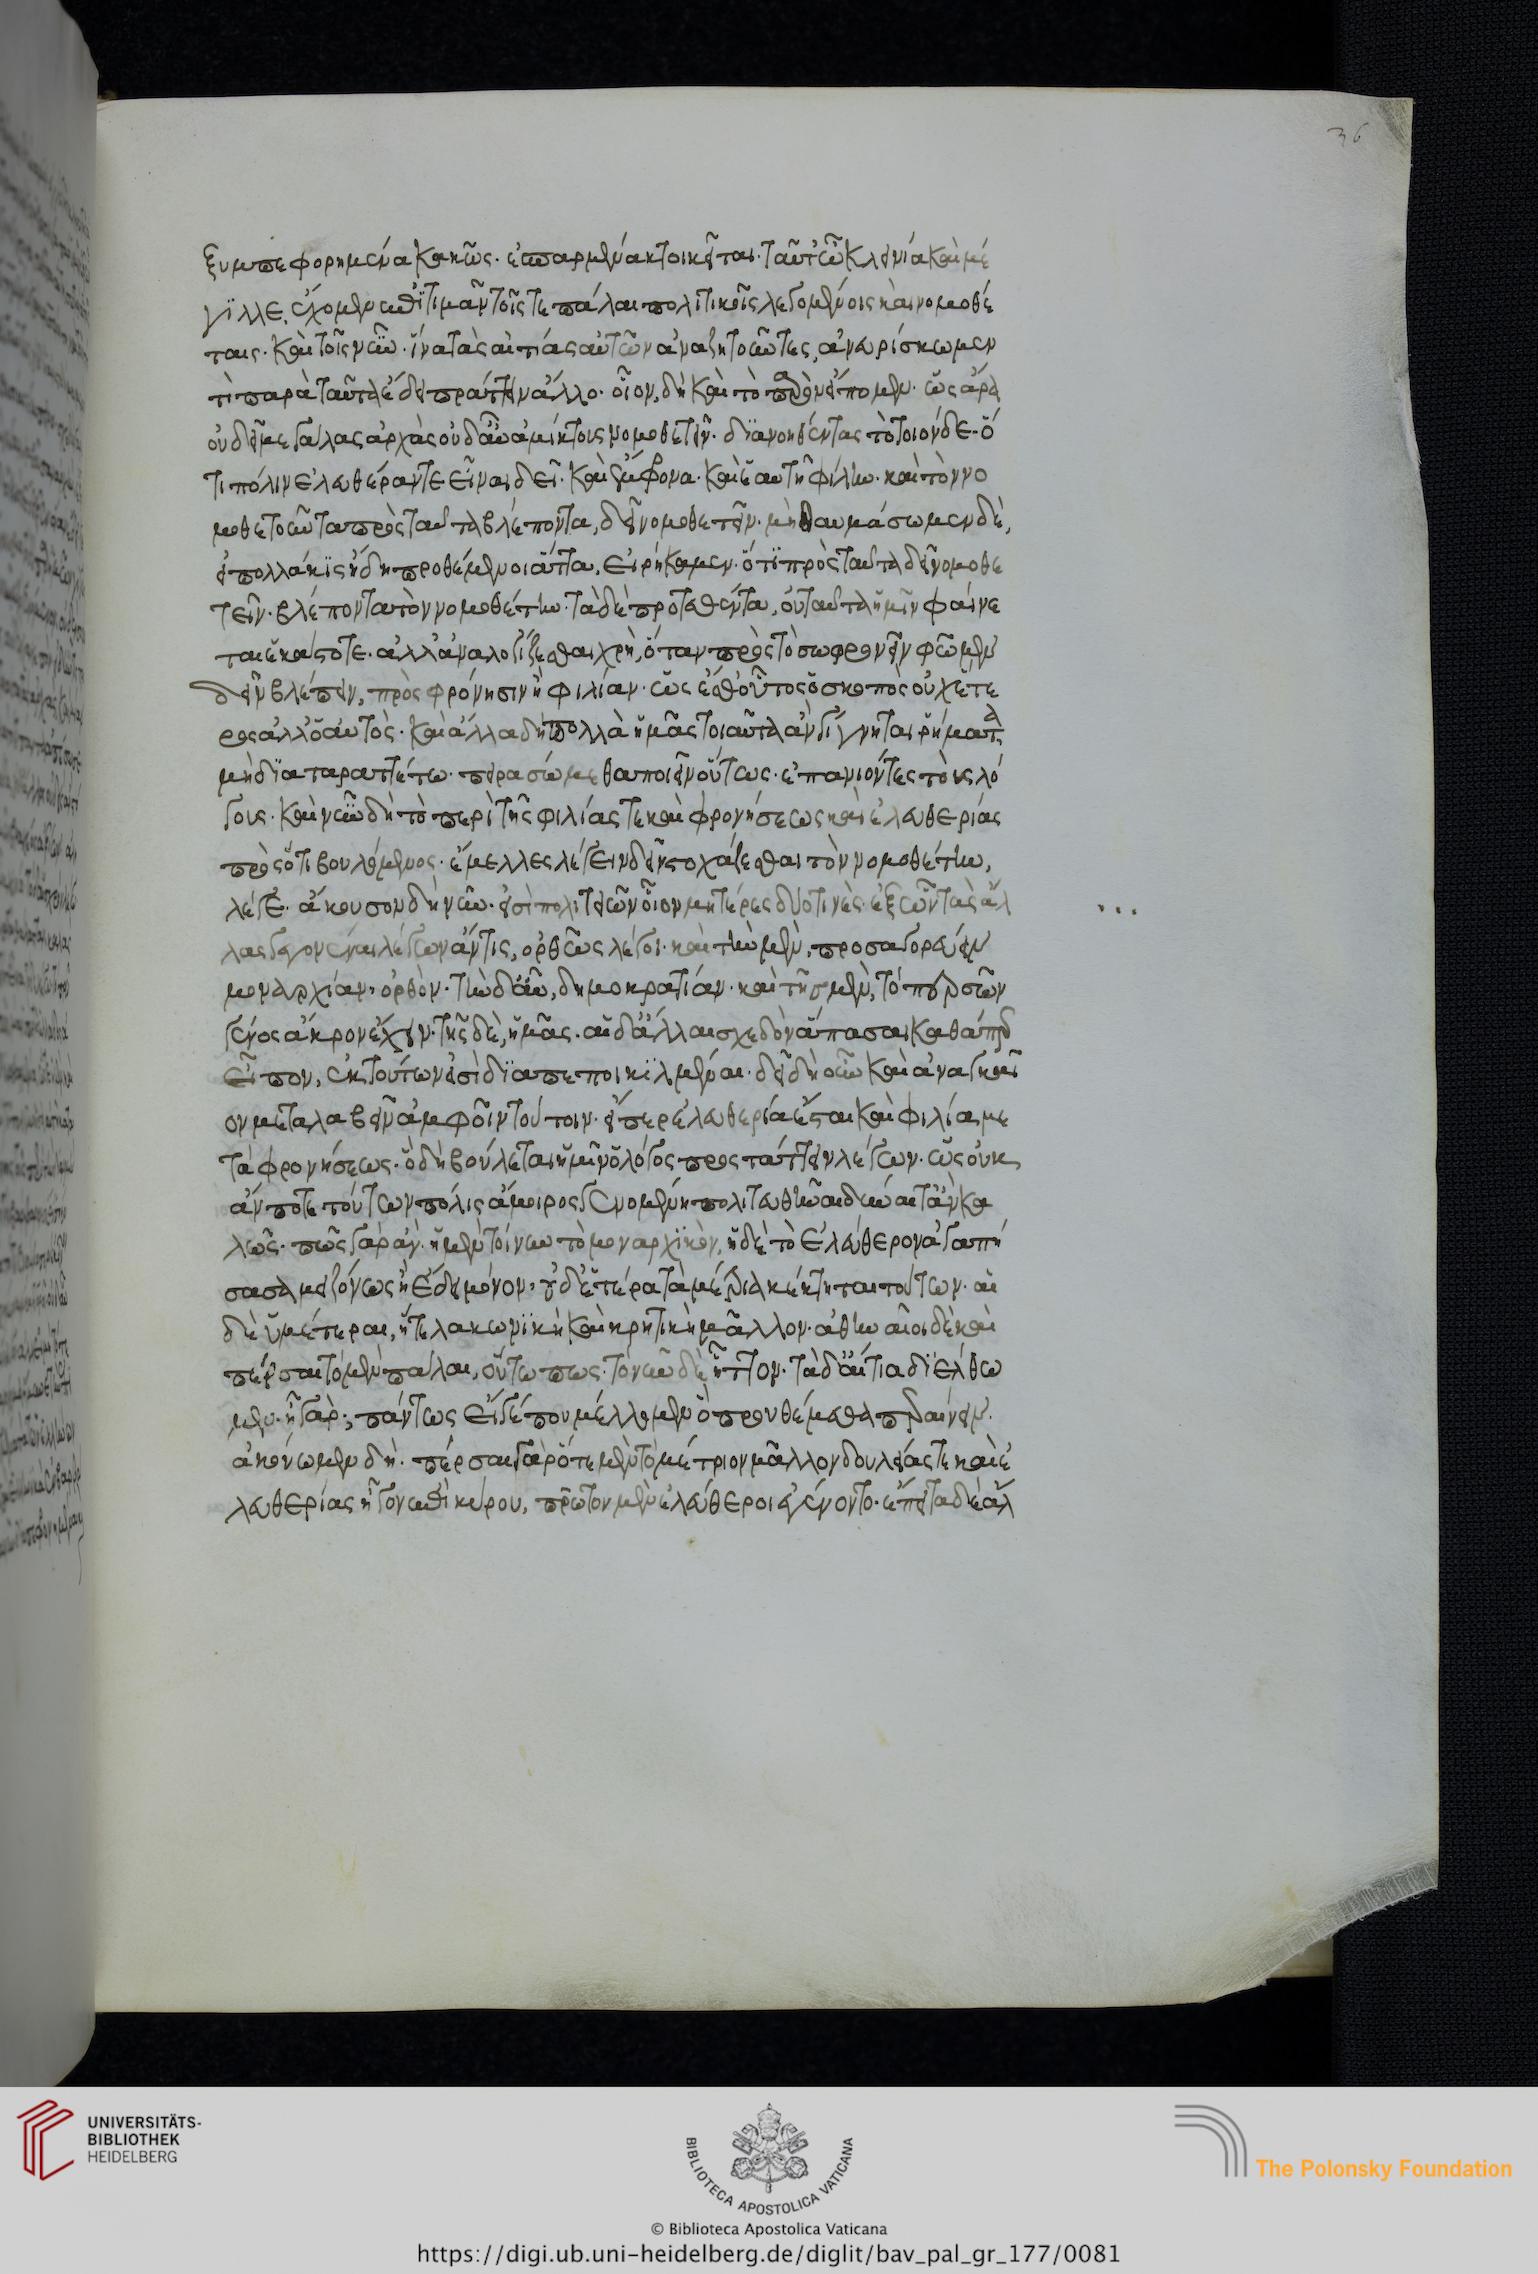 36
ξυμπεφορημένα κακῶς. ἐσπαρμένα κατοικεῖται. ταῦτ' ὦ Κλεινία καὶ μέ
γιλλε, ἔχομεν ἐπιτιμᾶν τοῖς τε πάλαι πολιτικοῖς λεγομένοις καὶ νομοθέ
ταις. καὶ τοῖς νῦν. ἵνα τὰς αἰτίας αὐτῶν ἀναζητοῦντες, ἀνευρίσκωμεν
τί παρὰ ταῦτα ἔδει πράττειν ἄλλο. οἷον, δὴ καὶ τὸ παρὸν εἴπομεν. ὡς ἄρα
οὐ δεῖ μεγάλας ἀρχὰς οὐδ' αὖ ἀμίκτους νομοθετεῖν. διανοηθέντας τὸ τοιόνδε. ὅ
τι πόλιν ἐλευθέραν τε εἶναι δεῖ. καὶ ἔμφρονα. καὶ ἑαυτῇ φίλην. καὶ τὸν νο
μοθετοῦντα πρὸς ταῦτα βλέποντα, δεῖ νομοθετεῖν. μὴ θαυμάσωμεν δὲ,
εἰ πολλάκις ἤδη προθέμενοι ἄττα, εἰρήκαμεν. ὅτι πρὸς ταῦτα δεῖ νομοθε
τεῖν. βλέποντα τὸν νομοθέτην. τὰ δὲ προτεθέντα, οὐ ταῦτα ἡμῖν φαίνε
ται ἑκάστοτε. ἀλλ' ἀναλογίζεσθαι χρὴ, ὅταν πρὸς τὸ σωφρονεῖν φῶμεν
δεῖν βλέπειν, πρὸς φρόνησιν ἢ φιλίαν. ὡς ἔσθ' οὗτος ὁ σκοπὸς οὐχ ἕτε
ρος ἀλλ' ὁ αὐτός. καὶ ἄλλα δὴ πολλὰ ἡμᾶς τοιαῦτα ἂν γίγνηται ῥήματα
μὴ διαταραττέτω. πειρασώμεθα ποιεῖν οὕτως. ἐπανιόντες τοὺς λό
γους. καὶ νῦν δὴ τὸ περὶ τῆς φιλίας τε καὶ φρονήσεως καὶ ἐλευθερίας
πρὸς ὅτι βουλόμενος. ἔμελλες λέγειν δεῖν στοχάζεσθαι τὸν νομοθέτην,
λέγε. ἄκουσον δὴ νῦν. εἰσὶ πολιτειῶν οἷον μητέρες δύο τινὲς. ἐξ ὧν τὰς ἄλ
λας γεγονέναι λέγων ἄν τις, ὀρθῶς λέγοι. καὶ τὴν μὲν, προσαγορεύειν
μοναρχίαν, ὀρθόν. τὴν δ' αὖ, δημοκρατίαν. καὶ τῆς μὲν, τὸ περσῶν
γένος ἄκρον ἔχειν. τῆς δὲ, ἡμᾶς. αἱ δ' ἄλλαι σχεδὸν ἅπασαι καθάπερ
εἶπον, ἐκ τούτων εἰσὶ διαπεποικιλμέναι. δεῖ δὴ οὖν καὶ ἀναγκαῖ
ον μεταλαβεῖν ἀμφοῖν τούτοιν. εἴπερ ἐλευθερία ἔσται καὶ φιλία, με
τὰ φρονήσεως. ὃ δὴ βούλεται ἡμῖν ὁ λόγος προστάττειν λέγων. ὡς οὐκ
ἄν ποτε τούτων πόλις ἄμοιρος γενομένη πολιτευθῆναι δύναιτ' ἂν κα
λῶς. πῶς γὰρ ἄν. ἡ μὲν τοίνυν τὸ μοναρχικὸν, ἡ δὲ τὸ ἐλεύθερον ἀγαπή
σασα μειζόνως ἢ ἔδει μόνον, οὐδετέρα τὰ μέτρια κέκτηται τούτων. αἱ
δὲ ὑμέτεραι, ἥ τε λακωνικὴ καὶ κρητικὴ μᾶλλον. ἀθηναῖοι δὲ καὶ
πέρσαι τὸ μὲν πάλαι, οὕτω πως. τὸ νῦν δὲ ἧττον. τὰ δ' αἴτια διέλθω
μεν. ἢ γάρ; πάντως εἴ γέ που μέλλομεν ὃ προυθέμεθα περαίνειν.
ἀκούωμεν δή. πέρσαι γὰρ ὅτε μὲν τὸ μέτριον μᾶλλον δουλείας τε καὶ ἐ
λευθερίας ἦγον ἐπὶ κύρου, πρῶτον μὲν ἐλεύθεροι ἐγένοντο. ἔπειτα δὲ ἄλ
UNIVERSITÄTS-
BIBLIOTHEK
HEIDELBERG
BIBLIOTECA APOSTOLICA VATICANA
The Polonsky Foundation
© Biblioteca Apostolica Vaticana
https://digi.ub.uni-heidelberg.de/diglit/bav_pal_gr_177/0081